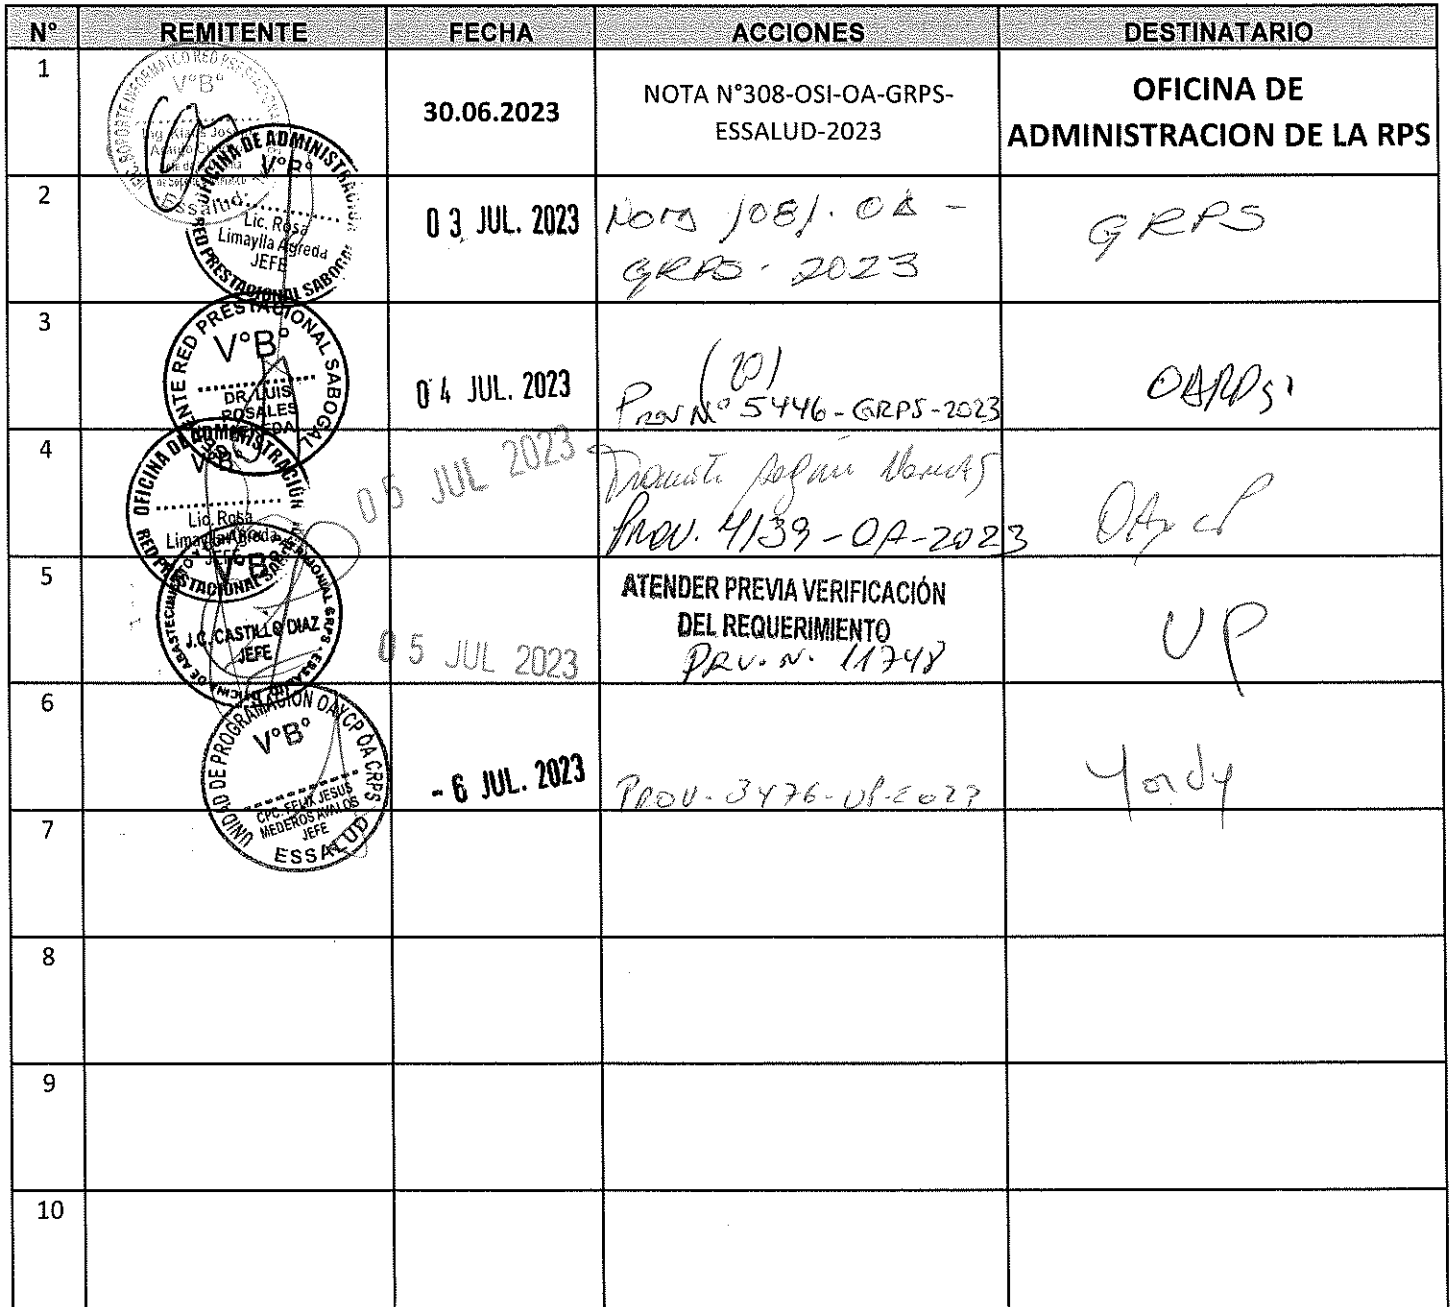 N° REMITENTE FECHA ACCIONES DESTINATARIO
1
V°B°
Essalud
30.06.2023
NOTA N°308-OSI-OA-GRPS-
ESSALUD-2023
OFICINA DE
ADMINISTRACION DE LA RPS
2
OFICINA DE ADMINISTRACIÓN
V°B°
Lic. Rosa
Limaylla Agreda
JEFE
RED PRESTACIONAL SABOGAL
03 JUL. 2023
Nota 1081-OA-
GRPS-2023
GRPS
3
RED PRESTACIONAL SABOGAL
V°B°
DR. LUIS
ROSALES
04 JUL. 2023
(20)
Prov N° 5446-GRPS-2023
4
OFICINA DE ADMINISTRACIÓN
V°B°
Lic. Rosa
Limaylla Agreda
JEFE
RED PRESTACIONAL SABOGAL
05 JUL 2023
PROV. 4139-OA-2023
OAyCP
5
V°B°
J.C. CASTILLO DIAZ
JEFE
05 JUL 2023
ATENDER PREVIA VERIFICACIÓN
DEL REQUERIMIENTO
PRV. N. 11748
UP
6
UNIDAD DE PROGRAMACION OAYCP OA GRPS
V°B°
CPC. FELIX JESUS
MEDEROS AVALOS
JEFE
ESSALUD
- 6 JUL. 2023
PROV-3476-UP-2023
Yordy
7
8
9
10